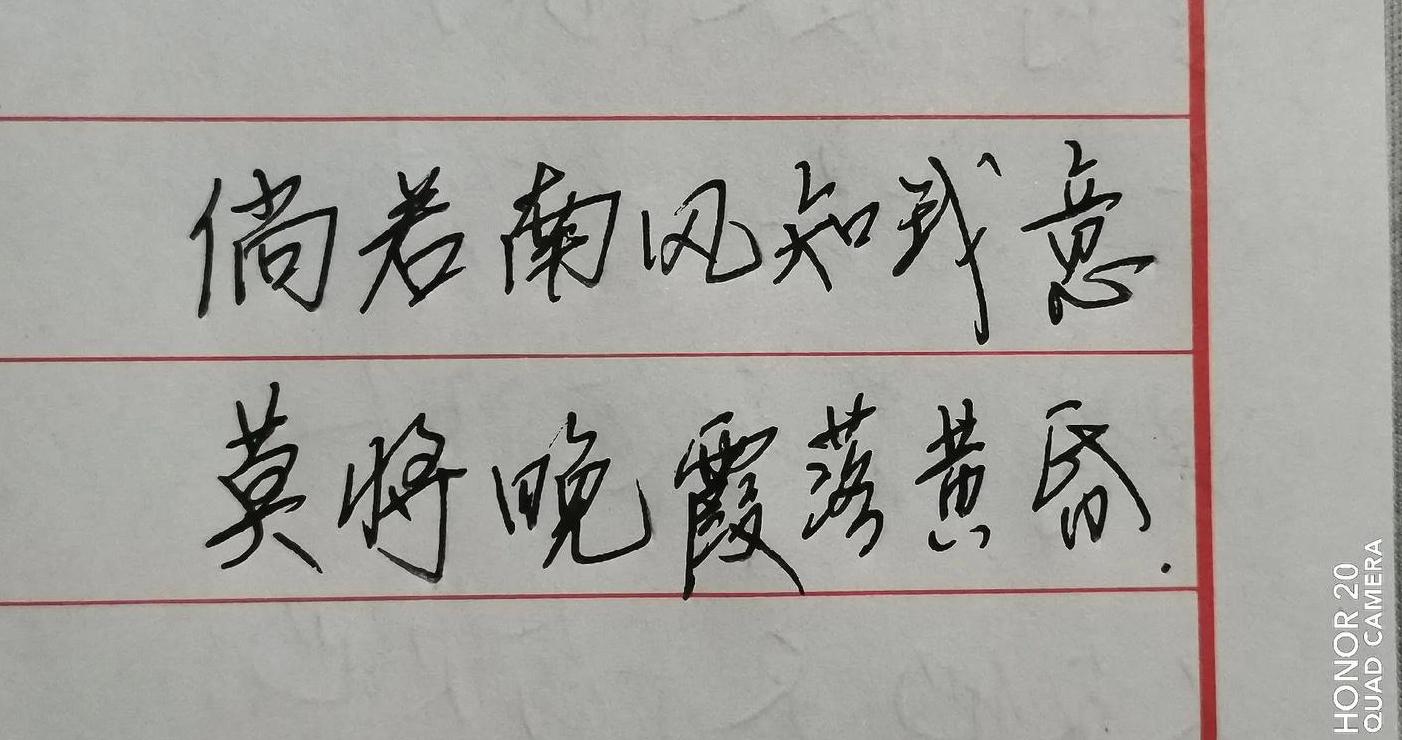 倘若南风知我意
莫将晚霞落黄昏.
HONOR 20
QUAD CAMERA